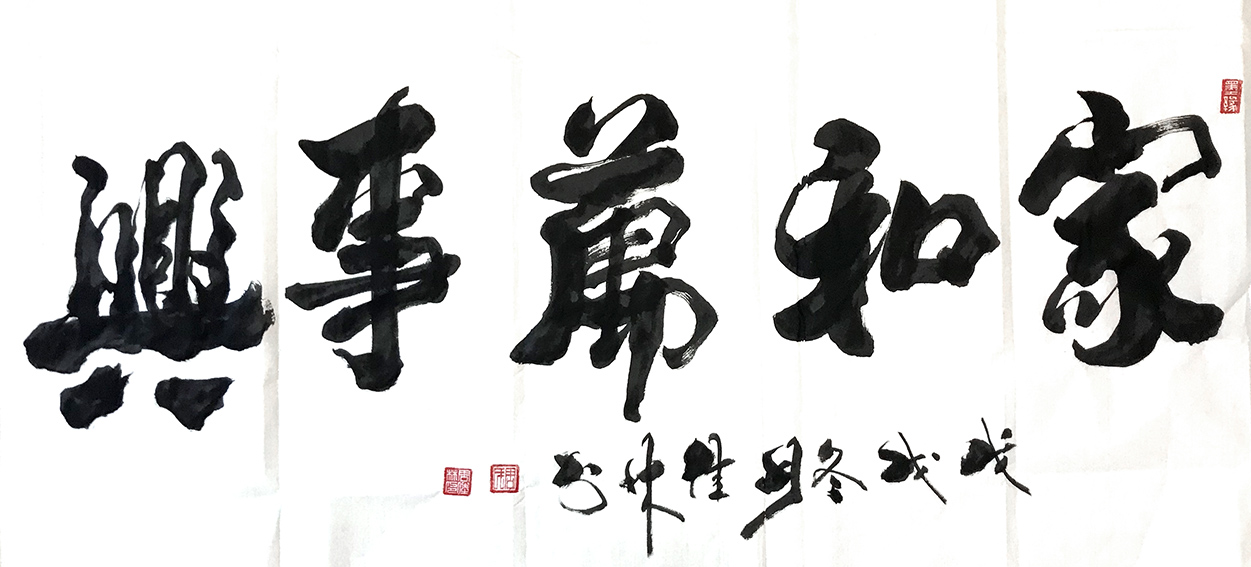 家和萬事興
戊戌冬月佳林书